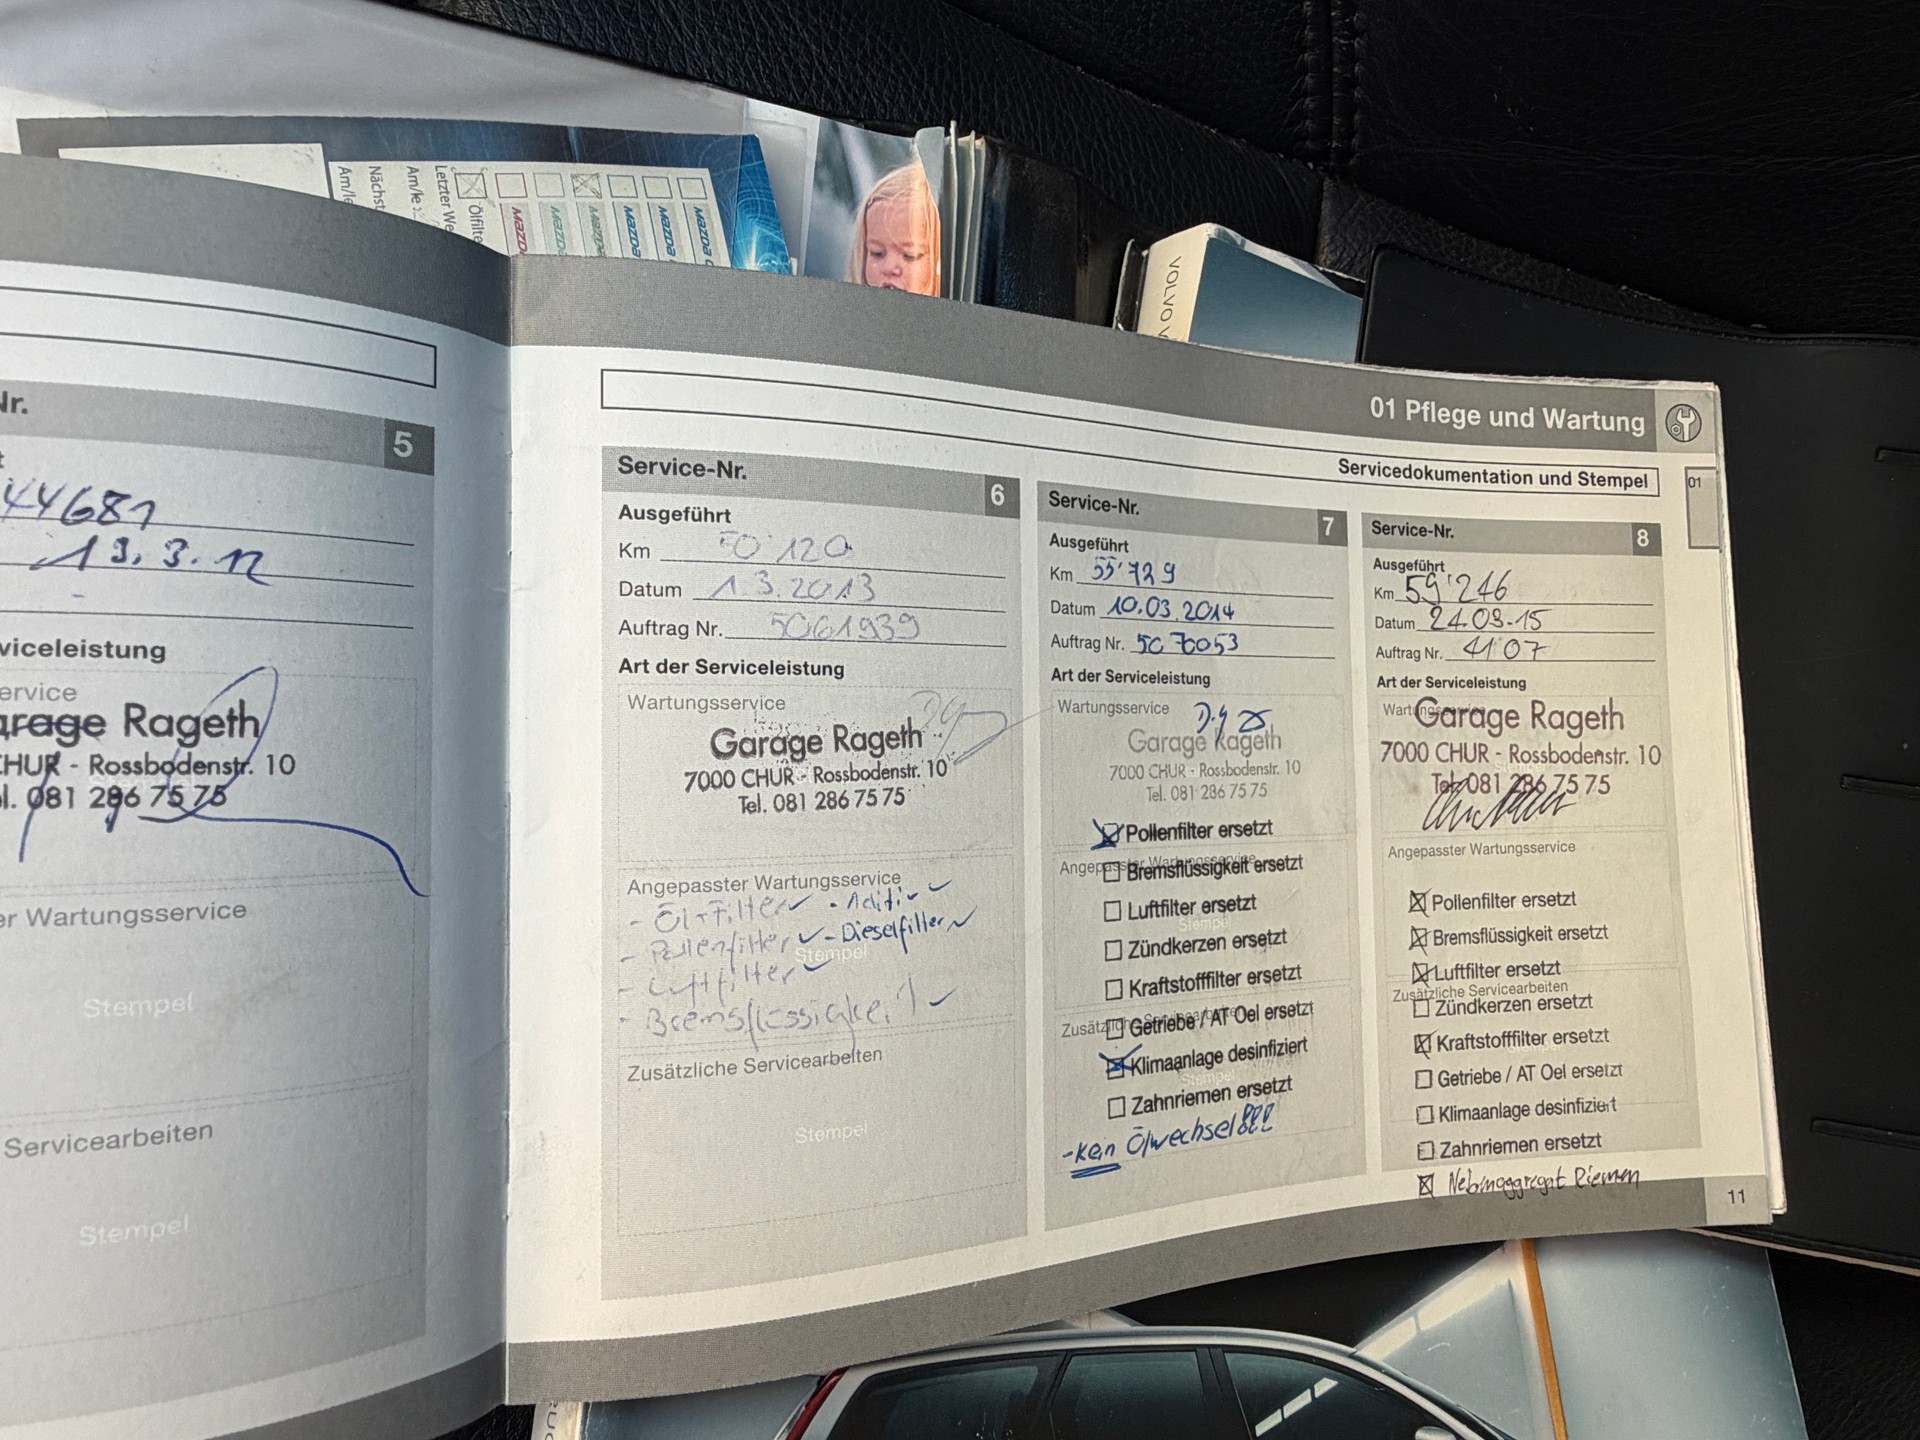 Am/le
Nächst
Am/le
Letzter We
Ölfilte
mazda
VOLVO V
Nr.
5
44681
13.3.12
viceleistung
ervice
arage Rageth
CHUR - Rossbodenstr. 10
el. 081 286 75 75
er Wartungsservice
Stempel
Servicearbeiten
Stempel
01 Pflege und Wartung
Servicedokumentation und Stempel
01
Service-Nr.
6
Ausgeführt
Km 50'120
Datum 1.3.2013
Auftrag Nr. 5061939
Art der Serviceleistung
Wartungsservice
Garage Rageth
7000 CHUR - Rossbodenstr. 10
Tel. 081 286 75 75
Angepasster Wartungsservice
- Öl+Filter - Aditiv
- Pollenfilter - Dieselfilter
Stempel
- Luftfilter
- Bremsflüssigkeit
Zusätzliche Servicearbeiten
Stempel
Service-Nr.
7
Ausgeführt
Km 55'729
Datum 10.03.2014
Auftrag Nr. 5070053
Art der Serviceleistung
Wartungsservice
Garage Rageth
7000 CHUR - Rossbodenstr. 10
Tel. 081 286 75 75
Pollenfilter ersetzt
Angepasster Wartungsservice
Bremsflüssigkeit ersetzt
Luftfilter ersetzt
Stempel
Zündkerzen ersetzt
Kraftstofffilter ersetzt
Zusätzliche Servicearbeiten
Getriebe / AT Oel ersetzt
Klimaanlage desinfiziert
Stempel
Zahnriemen ersetzt
- Kein Ölwechsel!!!
Service-Nr.
8
Ausgeführt
Km 59'246
Datum 24.03.15
Auftrag Nr. 4107
Art der Serviceleistung
Wartungsservice
Garage Rageth
7000 CHUR - Rossbodenstr. 10
Stempel
Tel. 081 286 75 75
Angepasster Wartungsservice
Pollenfilter ersetzt
Bremsflüssigkeit ersetzt
Luftfilter ersetzt
Zusätzliche Servicearbeiten
Zündkerzen ersetzt
Kraftstofffilter ersetzt
Stempel
Getriebe / AT Oel ersetzt
Klimaanlage desinfiziert
Zahnriemen ersetzt
Nebenaggregat Riemen
11